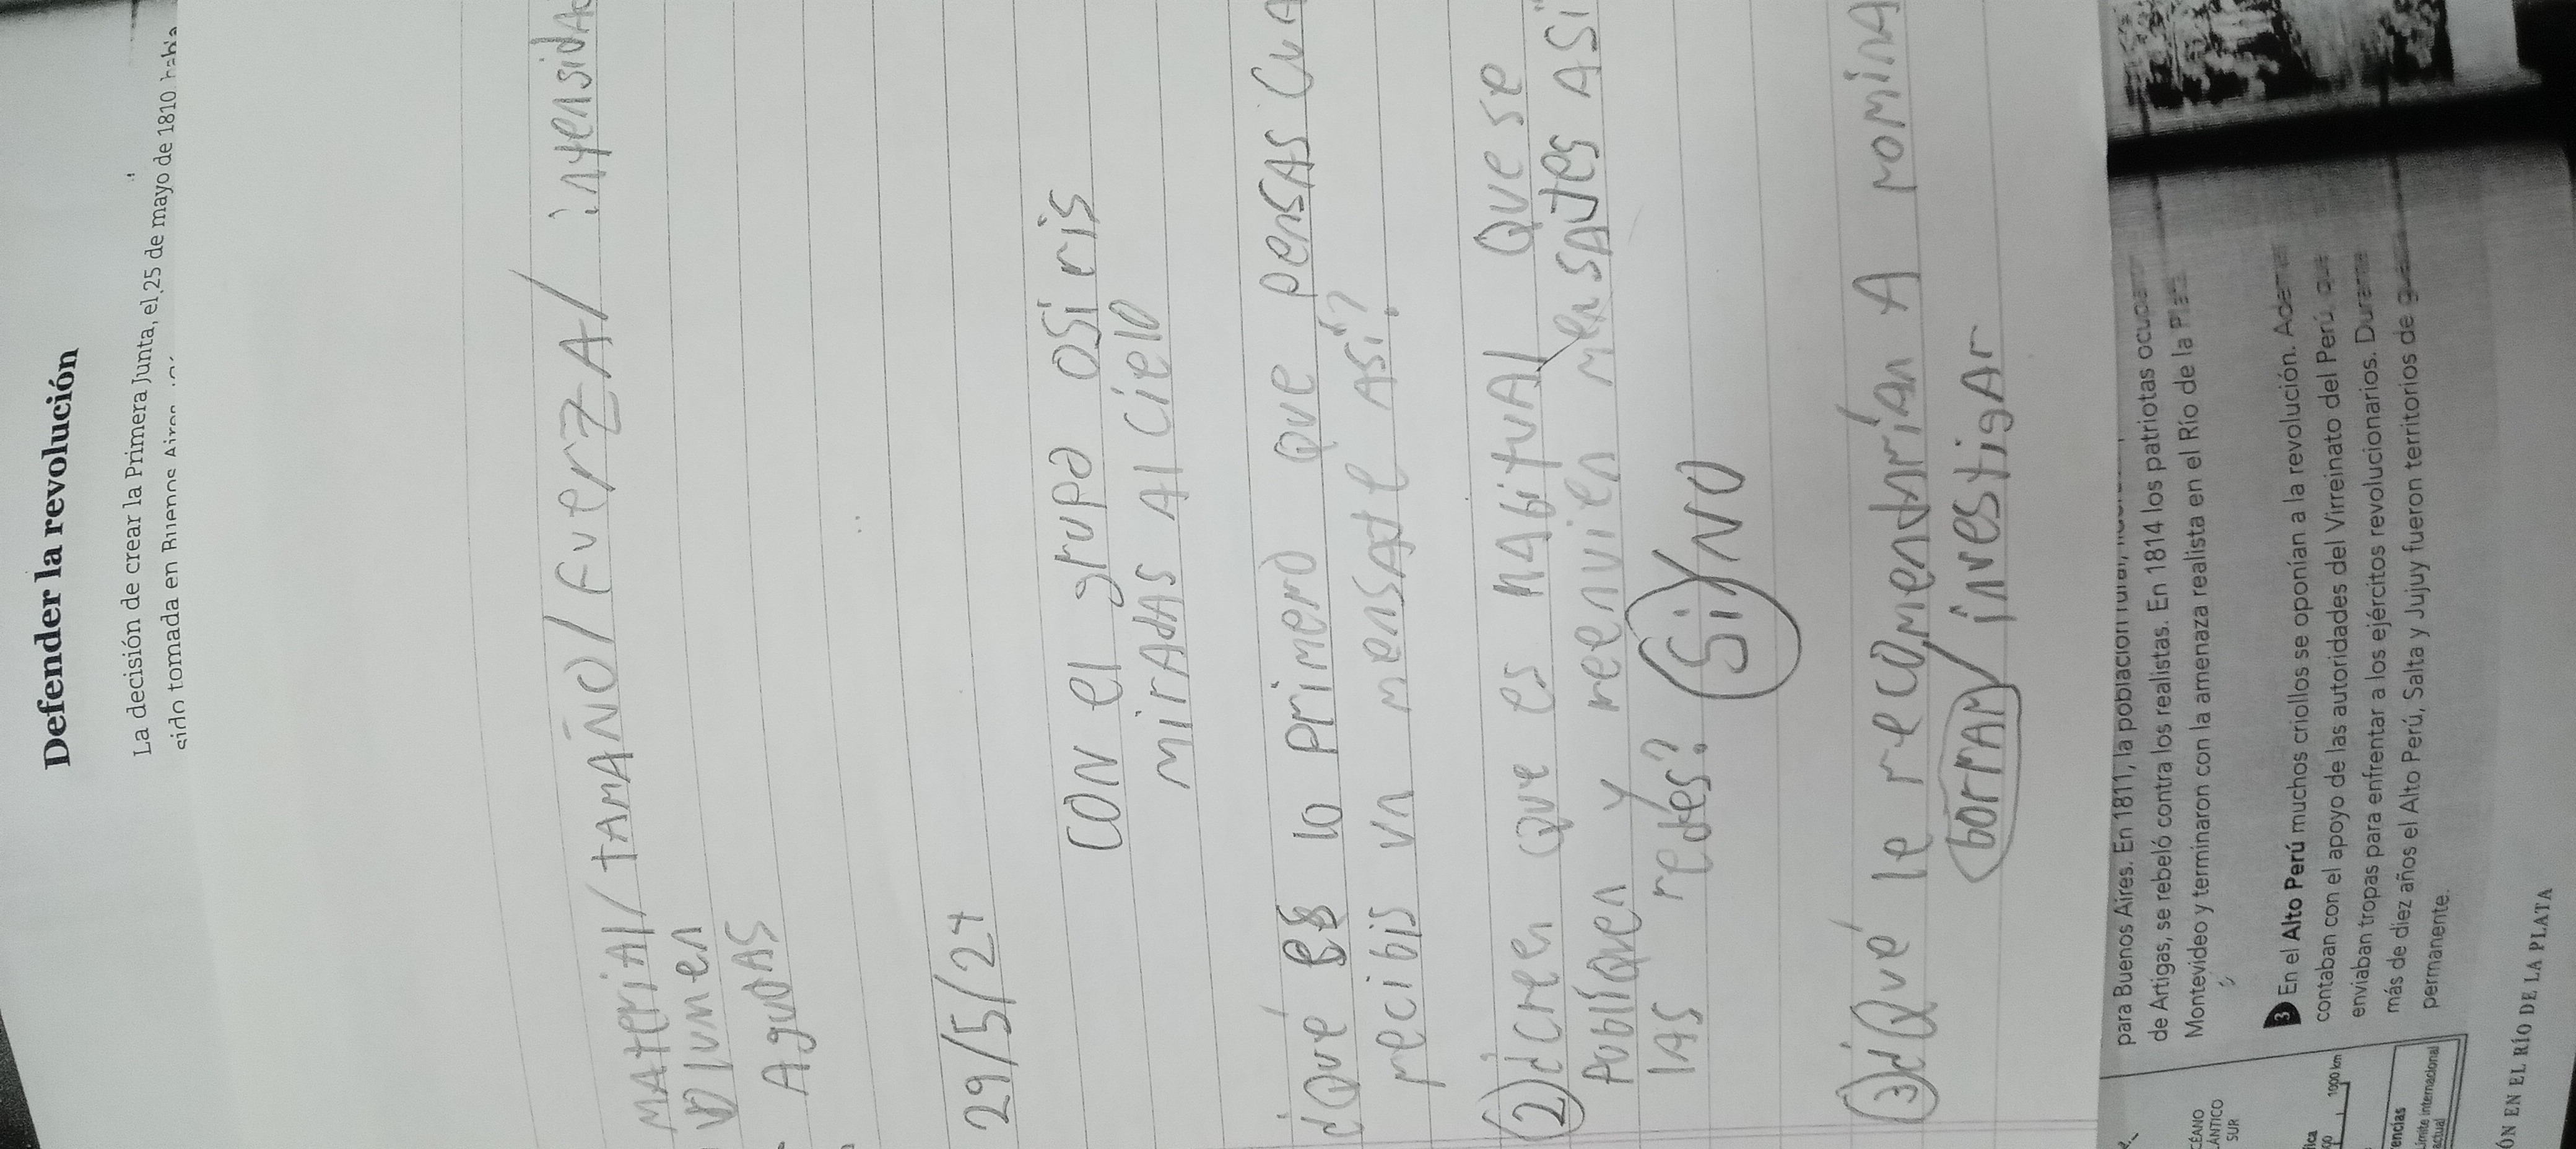 Defender la revolución
La decisión de crear la Primera Junta, el 25 de mayo de 1810 había
sido tomada en Buenos Aires
MATERIAl/TAMAÑO/FUERZA/intensida
VOlumen
AgudAS
29/5/24
CON el grupo OSiris
mirAdAS Al Cielo
¿Qué es lo Primero Que PensAS CuA
recibis un mensAJe ASí?
2) ¿Creen Que es HAbituAl Que se
Publíquen y reenvien mensAJes ASí
lAS redes? Si/NO
3) ¿Qué le recomendAríAn A romina
borrAr/investigAr
para Buenos Aires. En 1811, la población rural,
de Artigas, se rebeló contra los realistas. En 1814 los patriotas ocuparon
Montevideo y terminaron con la amenaza realista en el Río de la Plata
3 En el Alto Perú muchos criollos se oponían a la revolución. Además
contaban con el apoyo de las autoridades del Virreinato del Perú, que
enviaban tropas para enfrentar a los ejércitos revolucionarios. Durante
más de diez años el Alto Perú, Salta y Jujuy fueron territorios de
permanente.
1000 km
CÉANO
LÁNTICO
SUR
encias
Límite internacional
actual
ÓN EN EL RÍO DE LA PLATA